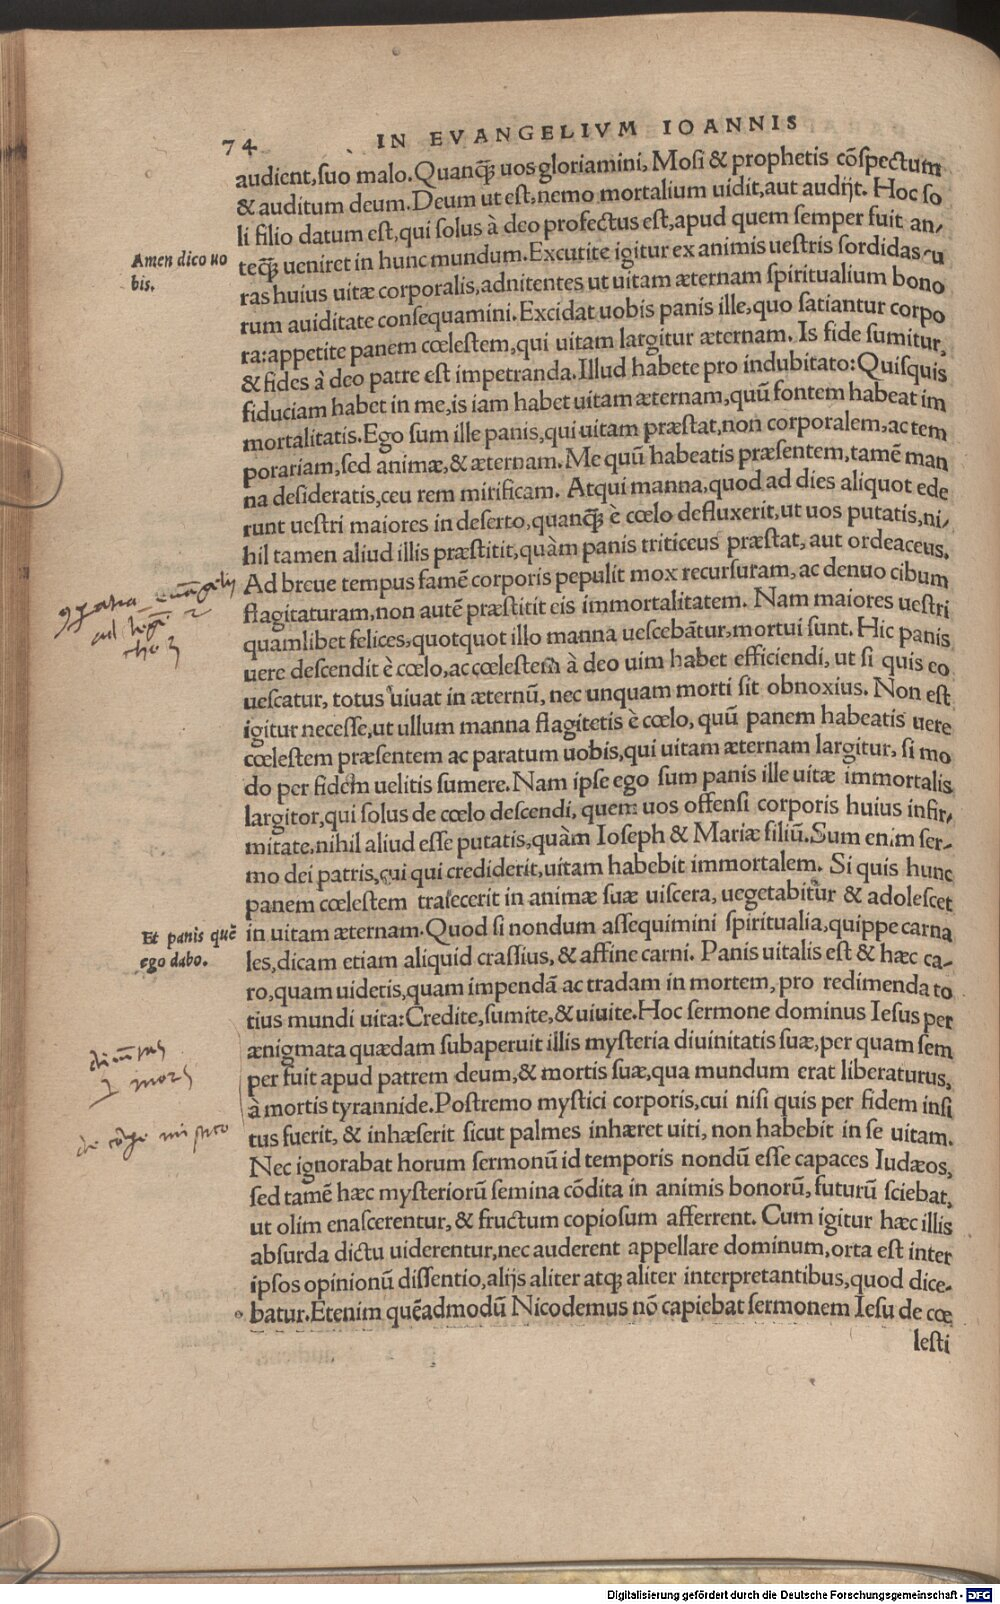 74 IN EVANGELIVM IOANNIS
audient,suo malo.Quanq̃ uos gloriamini, Mosi & prophetis cōspectum
& auditum deum.Deum ut est,nemo mortalium uidit,aut audijt. Hoc so
li filio datum est,qui solus à deo profectus est,apud quem semper fuit an-
Amen dico uo
bis.
teq̃ ueniret in hunc mundum.Excutite igitur ex animis uestris sordidas cu
ras huius uitæ corporalis,adnitentes ut uitam æternam spiritualium bono
rum auiditate consequamini.Excidat uobis panis ille,quo satiantur corpo
ra:appetite panem cœlestem,qui uitam largitur æternam. Is fide sumitur,
& fides à deo patre est impetranda.Illud habete pro indubitato:Quisquis
fiduciam habet in me,is iam habet uitam æternam,quū fontem habeat im
mortalitatis.Ego sum ille panis,qui uitam præstat,non corporalem,ac tem
porariam,sed animæ,& æternam. Me quū habeatis præsentem,tamē man
na desideratis,ceu rem mirificam. Atqui manna,quod ad dies aliquot ede
runt uestri maiores in deserto,quanq̃ è cœlo defluxerit,ut uos putatis,ni-
hil tamen aliud illis præstitit,quàm panis triticeus præstat, aut ordeaceus.
Ad breue tempus famē corporis pepulit mox recursuram, ac denuo cibum
flagitaturam,non autē præstitit eis immortalitatem. Nam maiores uestri
quamlibet felices,quotquot illo manna uescebātur,mortui sunt. Hic panis
uere descendit è cœlo,ac cœlestem à deo uim habet efficiendi, ut si quis eo
uescatur, totus uiuat in æternū, nec unquam morti sit obnoxius. Non est
igitur necesse,ut ullum manna flagitetis è cœlo, quū panem habeatis uere
cœlestem præsentem ac paratum uobis,qui uitam æternam largitur, si mo
do per fidem uelitis sumere.Nam ipse ego sum panis ille uitæ immortalis
largitor,qui solus de cœlo descendi, quem uos offensi corporis huius infir-
mitate,nihil aliud esse putatis,quàm Ioseph & Mariæ filiū.Sum enim ser-
mo dei patris,cui qui crediderit,uitam habebit immortalem. Si quis hunc
panem cœlestem traiecerit in animæ suæ uiscera, uegetabitur & adolescet
Et panis quē
ego dabo.
in uitam æternam.Quod si nondum assequimini spiritualia,quippe carna
les,dicam etiam aliquid crassius, & affine carni. Panis uitalis est & hæc ca-
ro,quam uidetis,quam impendā ac tradam in mortem, pro redimenda to
tius mundi uita:Credite,sumite,& uiuite.Hoc sermone dominus Iesus per
ænigmata quædam subaperuit illis mysteria diuinitatis suæ,per quam sem
per fuit apud patrem deum,& mortis suæ,qua mundum erat liberaturus,
à mortis tyrannide.Postremo mystici corporis,cui nisi quis per fidem insi
tus fuerit, & inhæserit sicut palmes inhæret uiti, non habebit in se uitam.
Nec ignorabat horum sermonū id temporis nondū esse capaces Iudæos,
sed tamē hæc mysteriorū semina cōdita in animis bonorū, futurū sciebat,
ut olim enascerentur, & fructum copiosum afferrent. Cum igitur hæc illis
absurda dictu uiderentur,nec auderent appellare dominum, orta est inter
ipsos opinionū dissentio,alijs aliter atq; aliter interpretantibus,quod dice-
batur.Etenim quēadmodū Nicodemus nō capiebat sermonem Iesu de cœ
lesti
Digitalisierung gefördert durch die Deutsche Forschungsgemeinschaft - DFG